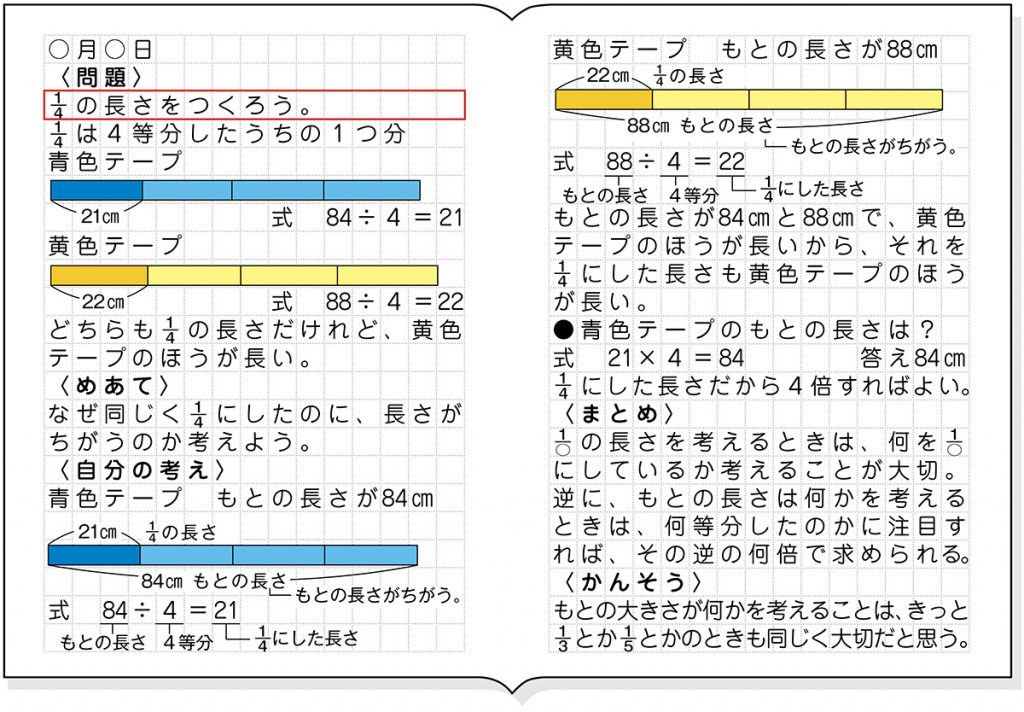 ○月○日
〈問題〉
1/4の長さをつくろう。
1/4は4等分したうちの1つ分
青色テープ
21㎝
式 84÷4=21
黄色テープ
22㎝
式 88÷4=22
どちらも1/4の長さだけれど、黄色
テープのほうが長い。
〈めあて〉
なぜ同じく1/4にしたのに、長さが
ちがうのか考えよう。
〈自分の考え〉
青色テープ もとの長さが84㎝
21㎝ 1/4の長さ
84㎝ もとの長さ
もとの長さがちがう。
式 84÷4=21
もとの長さ 4等分 1/4にした長さ
黄色テープ もとの長さが88㎝
22㎝ 1/4の長さ
88㎝ もとの長さ
もとの長さがちがう。
式 88÷4=22
もとの長さ 4等分 1/4にした長さ
もとの長さが84㎝と88㎝で、黄色
テープのほうが長いから、それを
1/4にした長さも黄色テープのほう
が長い。
●青色テープのもとの長さは?
式 21×4=84 答え84㎝
1/4にした長さだから4倍すればよい。
〈まとめ〉
1/○の長さを考えるときは、何を1/○
にしているか考えることが大切。
逆に、もとの長さは何かを考える
ときは、何等分したのかに注目す
れば、その逆の何倍で求められる。
〈かんそう〉
もとの大きさが何かを考えることは、きっと
1/3とか1/5とかのときも同じく大切だと思う。